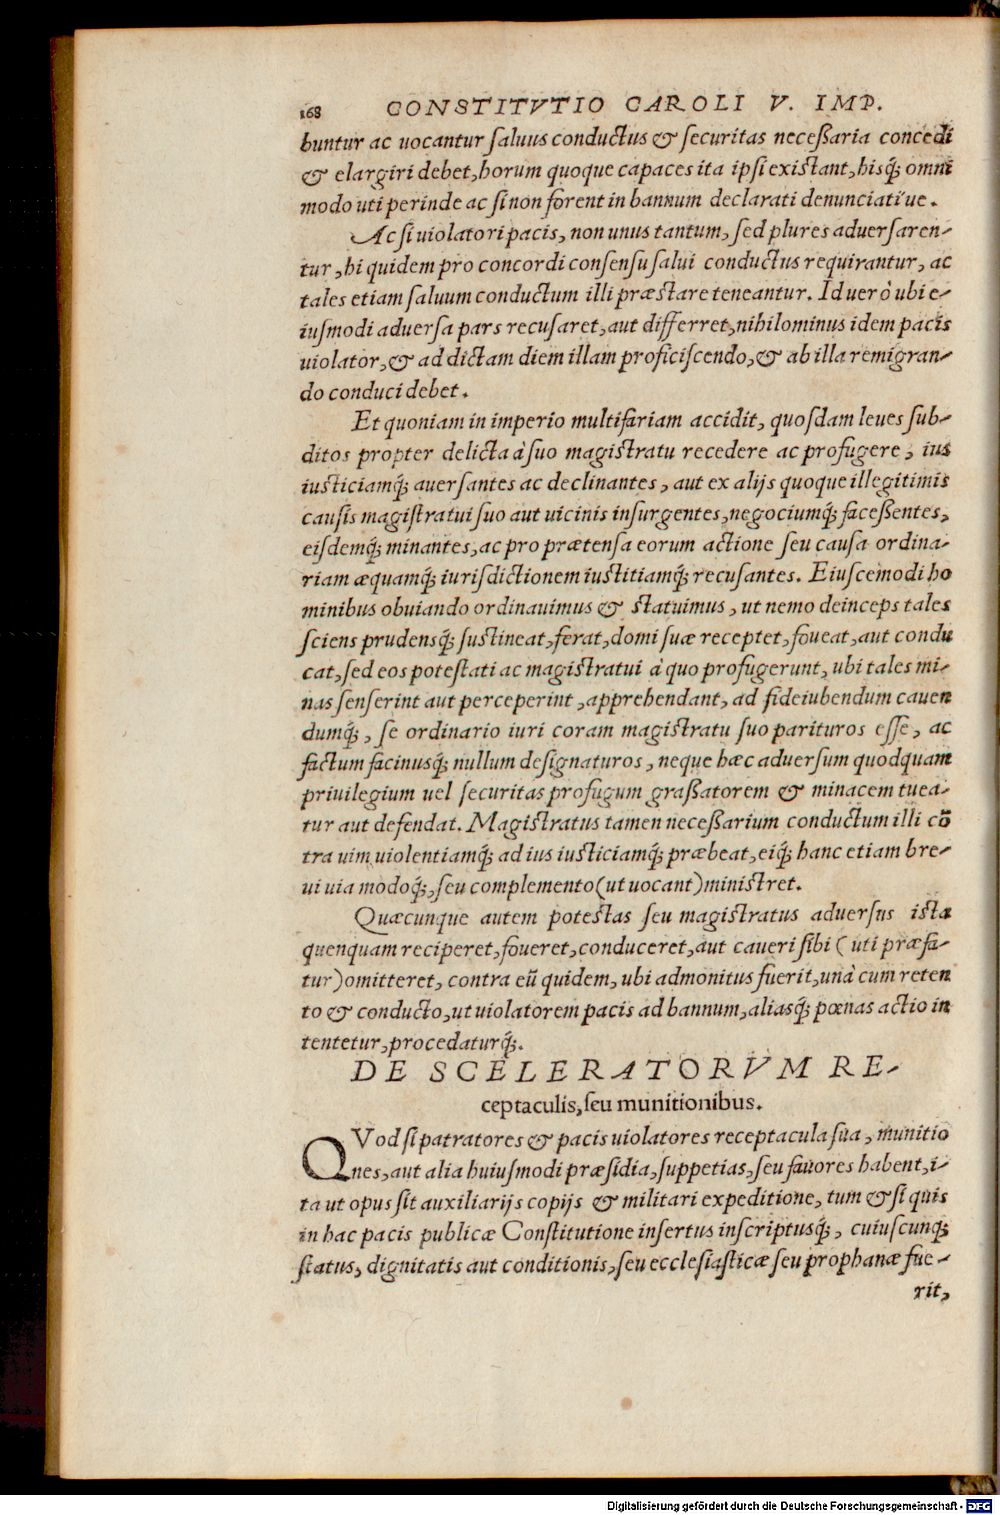 168 CONSTITVTIO CAROLI V. IMP.
buntur ac uocantur ſaluus conductus & ſecuritas neceßaria concedi
& elargiri debet, horum quoque capaces ita ipſi existant, hisq́; omni
modo uti perinde ac ſi non forent in bannum declarati denunciatiue.
Ac ſi uiolatori pacis, non unus tantum, ſed plures aduerſaren-
tur, hi quidem pro concordi conſenſu ſalui conductus requirantur, ac
tales etiam ſaluum conductum illi præstare teneantur. Id uerò ubi e-
iuſmodi aduerſa pars recuſaret, aut differret, nihilominus idem pacis
uiolator, & ad dictam diem illam proficiſcendo, & ab illa remigran-
do conduci debet.
Et quoniam in imperio multifariam accidit, quoſdam leues ſub-
ditos propter delicta à ſuo magistratu recedere ac profugere, ius
iusticiamq́; auerſantes ac declinantes, aut ex alijs quoque illegitimis
cauſis magiſtratui ſuo aut uicinis inſurgentes, negociumq́; faceßentes,
eiſdemq́; minantes, ac pro prætenſa eorum actione ſeu cauſa ordina-
riam æquamq́; iuriſdictionem iustitiamq́; recuſantes. Eiuſcemodi ho
minibus obuiando ordinauimus & statuimus, ut nemo deinceps tales
ſciens prudensq́; ſustineat, ferat, domi ſuæ receptet, foueat, aut condu
cat, ſed eos poteſtati ac magistratui à quo profugerunt, ubi tales mi-
nas ſenſerint aut perceperint, apprehendant, ad fideiubendum cauen
dumq́;, ſe ordinario iuri coram magistratu ſuo parituros eſſe, ac
factum facinusq́; nullum deſignaturos, neque hæc aduerſum quodquam
priuilegium uel ſecuritas profugum graßatorem & minacem tuea-
tur aut defendat. Magistratus tamen neceßarium conductum illi cō
tra uim uiolentiamq́; ad ius iusticiamq́; præbeat, eiq́; hanc etiam bre-
ui uia modoq́;, ſeu complemento (ut uocant) ministret.
Quæcunque autem potestas ſeu magistratus aduerſus ista
quenquam reciperet, foueret, conduceret, aut caueri ſibi (uti præfa-
tur) omitteret, contra eū quidem, ubi admonitus fuerit, unà cum reten
to & conducto, ut uiolatorem pacis ad bannum, aliasq́; pœnas actio in
tentetur, procedaturq́;.
DE SCELERATORVM RE-
ceptaculis, ſeu munitionibus.
QVod ſi patratores & pacis uiolatores receptacula ſua, munitio
nes, aut alia huiuſmodi præſidia, ſuppetias, ſeu fauores habent, i-
ta ut opus ſit auxiliarijs copijs & militari expeditione, tum & ſi quis
in hac pacis publicæ Conſtitutione inſertus inſcriptusq́;, cuiuſcunq;
ſtatus, dignitatis aut conditionis, ſeu eccleſiaſticæ ſeu prophanæ fue-
rit,
Digitalisierung gefördert durch die Deutsche Forschungsgemeinschaft - DFG